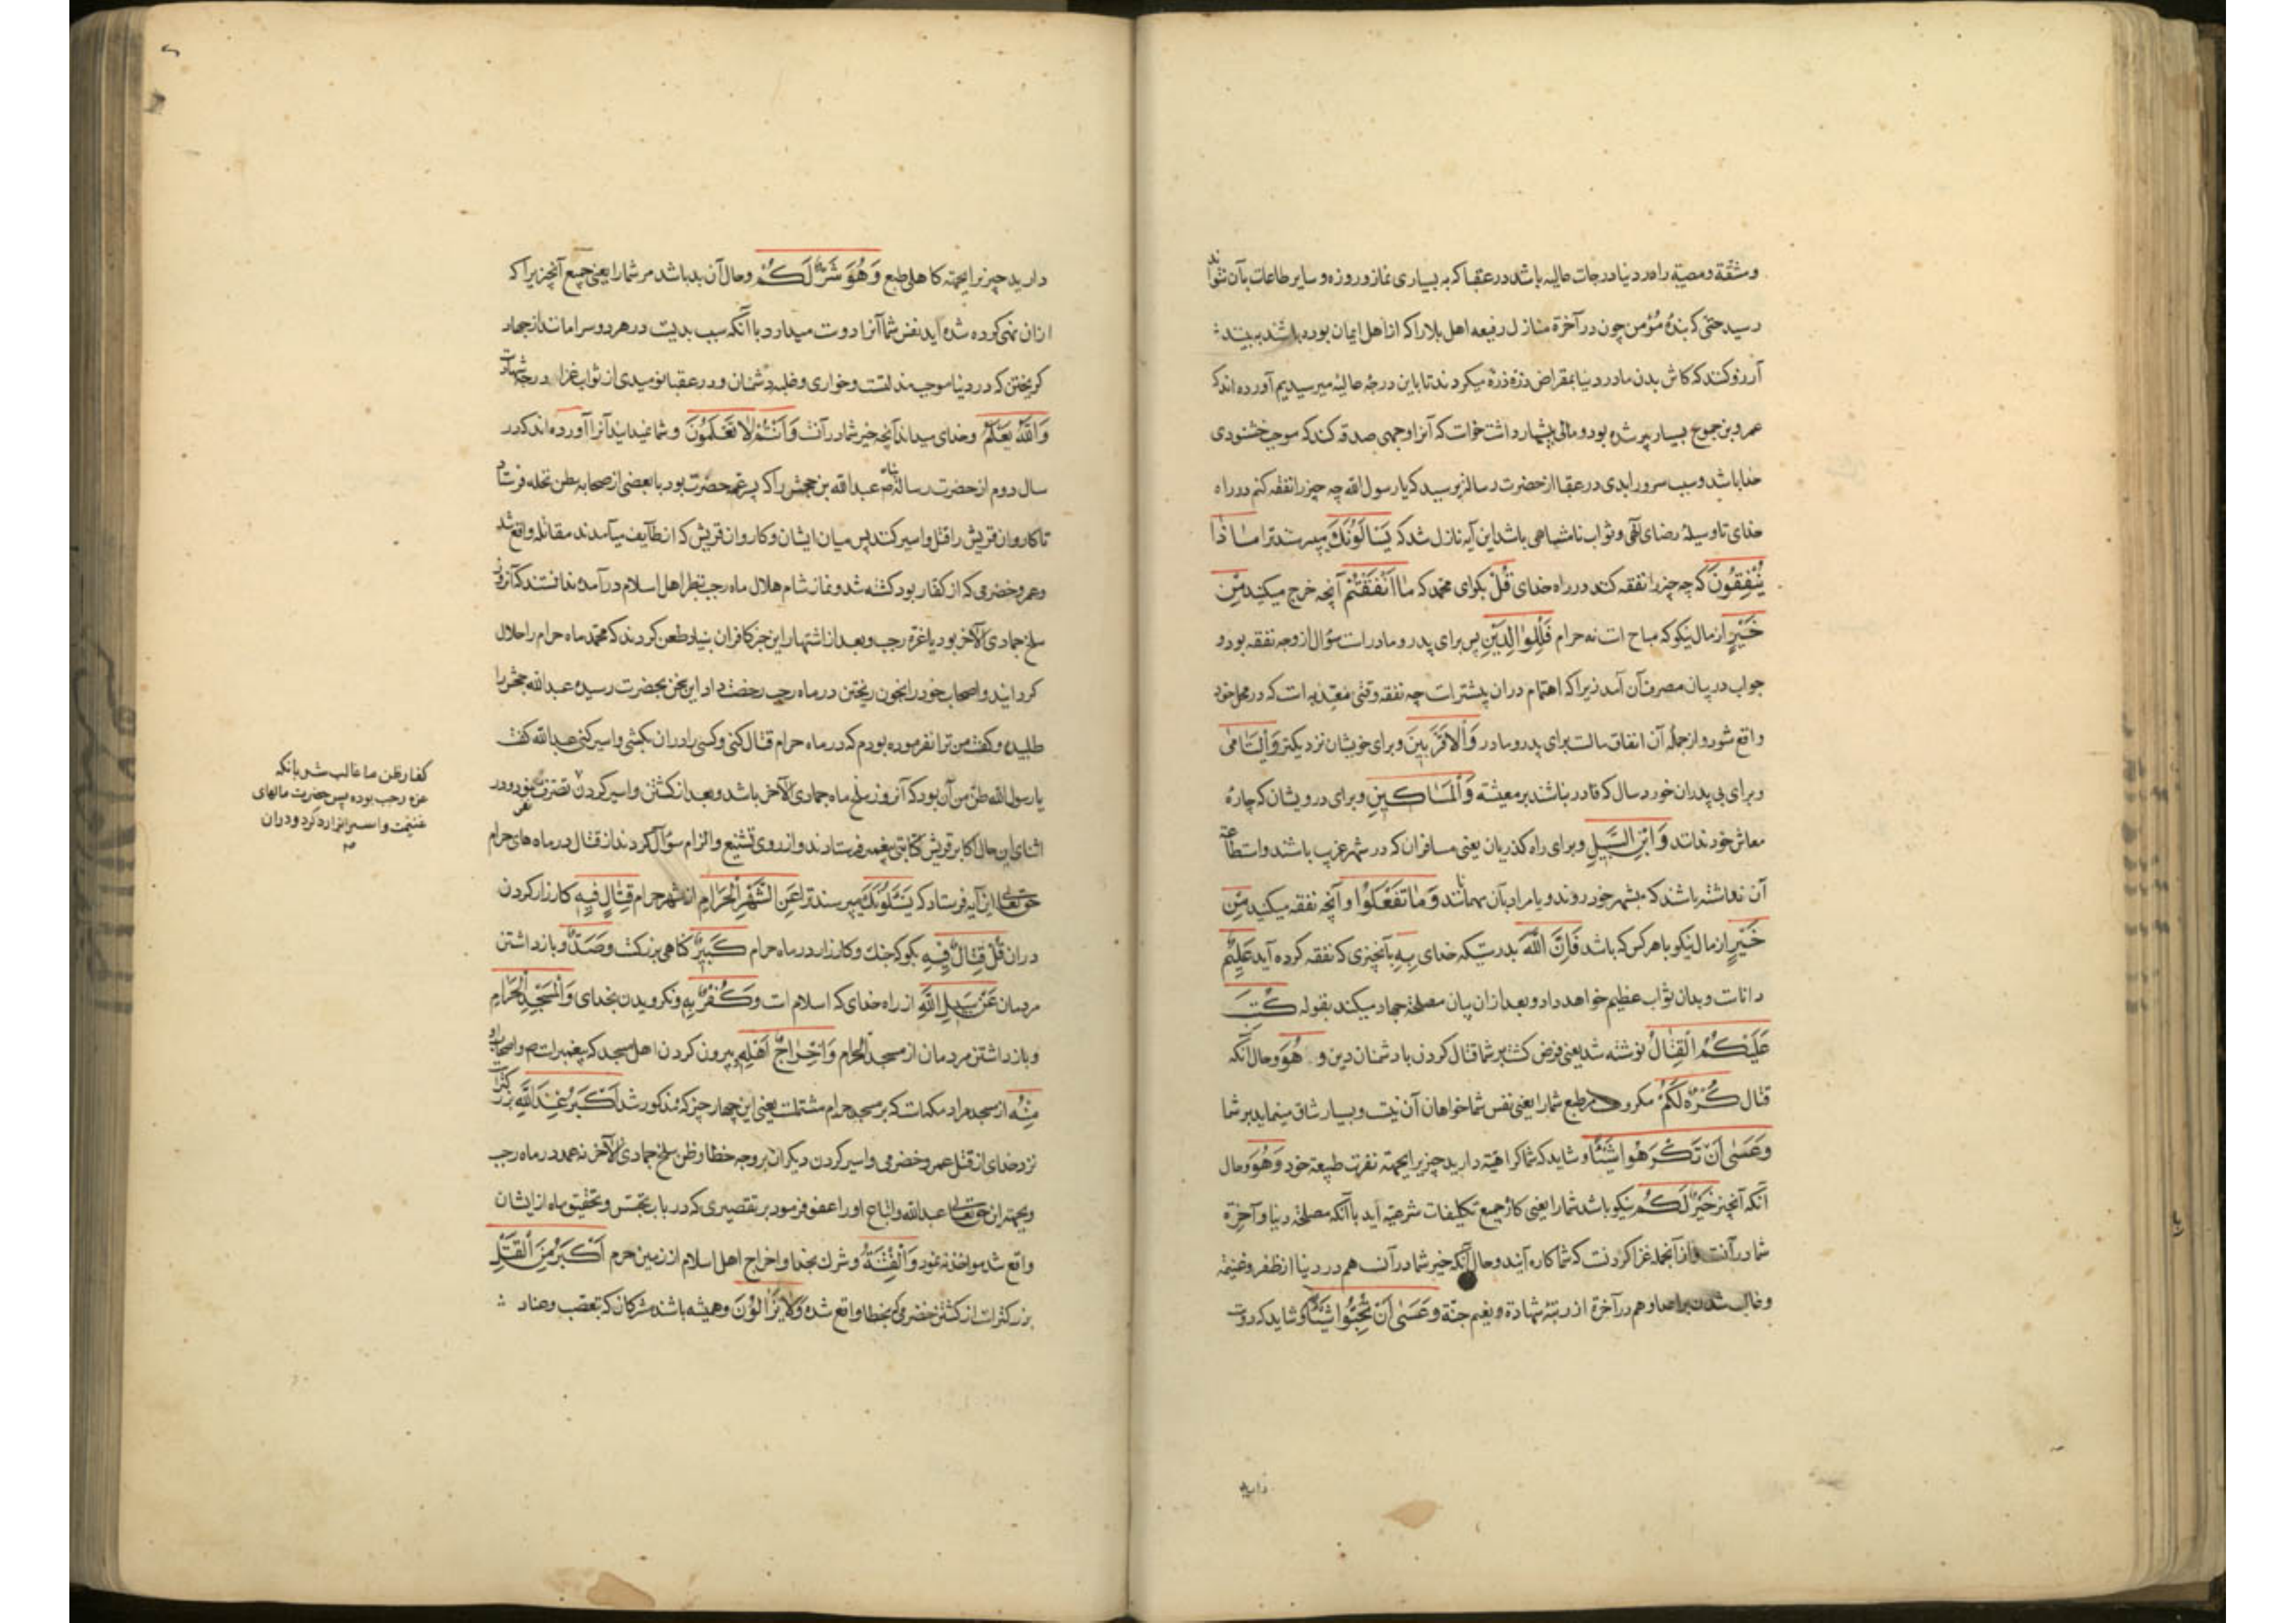 ومشقة ومصیبة را در دنیا درجات عالیه باشد در عقبا که به بسیاری نماز و روزه و سایر طاعات بآن نتواند
رسید حتی که بندهٔ مؤمن چون در آخرة منازل رفیعه اهل بلا را که از اهل ایمان بوده باشند به بیند
آرزو کند که کاش بدن ما در دنیا بمقراض ذرّه ذرّه میکردند تا باین درجهٔ عالیهٔ میرسیدیم آورده اند که
عمرو بن جموح بسیار پیر شده بود و مالی بیشمار داشت خواست که آنرا وجهی صدقه کند که موجب خشنودی
خدا باشد و سبب سرور ابدی در عقبا از حضرت رسالة پرسید که یا رسول الله چه چیز را نفقه کنم در راه
خدای تا وسیلهٔ رضای الهی و ثواب نامتناهی باشد این آیه نازل شد که یَسْاَلُونَكَ میپرسند ترا مَاذَا
یُنْفِقُونَ که چه چیز را نفقه کنند در راه خدای قُلْ بکوای محمد که مَا اَنْفَقْتُمْ آنچه خرج میکنید مِنْ
خَیْرٍ از مال نیکو که مباح است نه حرام فَلِلْوالِدَیْنِ پس برای پدر و مادر است سؤال از وجه نفقه بود و
جواب در بیان مصرف آن آمد زیرا که اهتمام در آن بیشتر است چه نفقه وقتی معتدّ به است که در محل خود
واقع شود و از جملهٔ آن انفاق مالست برای پدر و مادر وَالْاَقْرَبِینَ و برای خویشان نزدیکتر وَالْیَتَامٰی
و برای بی پدران خورد سال که قادر نباشند بر معیشة وَالْمَسَاكِینِ و برای درویشان که چارهٔ
معاش خود ندانند وَابْنِ السَّبِیلِ و برای راه کذریان یعنی مسافران که در شهر غریب باشند و استطاعة
آن نداشته باشند که بشهر خود روند و یا مراد بآن مهمانند وَمَا تَفْعَلُوا و آنچه نفقه میکنید مِنْ
خَیْرٍ از مال نیکو با هر کس که باشد فَاِنَّ اللّٰهَ بدرستیکه خدای بِهِ بآنچیزی که نفقه کرده آید عَلِیمٌ
داناست و بدان ثواب عظیم خواهد داد و بعد از آن بیان مصلحة جهاد میکند بقوله كُتِبَ
عَلَیْكُمُ الْقِتَالُ نوشته شد یعنی فرض کشت بر شما قتال کردن با دشمنان دین وَ هُوَ و حال آنکه
قتال كُرْهٌ لَكُمْ مکروه مر طبع شما را یعنی نفس شما خواهان آن نیست و بسیار شاق مینماید بر شما
وَعَسٰى اَنْ تَكْرَهُوا شَیْئًا و شاید که شما کراهیّة دارید چیز یرا بجهة نفرت طبیعة خود وَهُوَ و حال
آنکه آنچیز خَیْرٌ لَكُمْ نیکو باشد شما را یعنی کاز جمیع تکلیفات شرعیّه آید با آنکه مصلحة دنیا و آخرة
شما در آنست و از آنجمله غزا کردنست که شما کاره آیند و حال آنکه خیر شما در آنست هم در دنیا از ظفر و غنیمة
و غالب شدن بر اعدا و هم در آخرة از رتبهٔ شهادة و نعیم جنّة وَعَسٰى اَنْ تُحِبُّوا شَیْئًا و شاید که دوست
دارید
دارید چیز یرا بجهة کاهلی طبع وَهُوَ شَرٌّ لَكُمْ و حال آن بد باشد مر شما را یعنی جمیع آنچیزیرا که
از آن نهی کرده شده آید نفس شما آنرا دوست میدارد با آنکه سبب بدیست در هر دو سرا مانند از جهاد
کریختن که در دنیا موجب مذلّتست و خواری و غلبهٔ دشمنان و در عقبا نومیدی از ثواب غزا و درجهٔ شهادت
وَاللّٰهُ یَعْلَمُ و خدای میداند آنچه خیر شما در آنست وَاَنْتُمْ لَا تَعْلَمُونَ و شما نمیدانید آنرا آورده اند که در
سال دوم از حضرت رسالة عبد الله بن جحش را که پسر عمهٔ حضرت بود با بعضی از صحابه ببطن نخله فرستاد
تا کاروان قریش را قتل و اسیر کنند پس میان ایشان و کاروان قریش که از طایف میآمدند مقاتله واقع شد
و عمرو حضرمی که از کفار بود کشته شد و نماز شام هلال ماه رجب بنظر اهل اسلام در آمد و ندانستند که آنروز
سلخ جمادی الآخر بود یا غرّهٔ رجب و بعد از اشتهار این خبر کافران بنیاد طعن کردند که محمّد ماه حرام را حلال
کردانید و اصحاب خود را بخون ریختن در ماه رجب رخصت داد این سخن بحضرت رسیده عبد الله جحش را
طلبید و کفت من ترا نفرموده بودم که در ماه حرام قتال کنی و کسی را در آن بکشی و اسیر کنی عبد الله کفت
یا رسول الله ظن من آن بود که آنروز سلخ ماه جمادی الآخر باشد و بعد از کشتن و اسیر کردن تصرف ننمود و در
اثنای این حال اکابر قریش کتابتی به پیغمبر فرستادند و از روی تشنیع و الزام سؤال کردند از قتال در ماه های حرام
حق تعالی این آیه فرستاد که یَسْئَلُونَكَ میپرسند ترا عَنِ الشَّهْرِ الْحَرَامِ از شهر حرام قِتَالٍ فِیهِ کارزار کردن
در آن قُلْ قِتَالٌ فِیهِ بکو که جنك و کارزار در ماه حرام كَبِیرٌ کناهی بزرکست وَصَدٌّ و باز داشتن
مردمان عَنْ سَبِیلِ اللّٰهِ از راه خدای که اسلام است وَكُفْرٌ بِهِ و نکرویدن بخدای وَالْمَسْجِدِ الْحَرَامِ
و باز داشتن مردمان از مسجد الحرام وَاِخْرَاجُ اَهْلِهِ و بیرون کردن اهل مسجد که پیغمبر است و اصحاب او
مِنْهُ از مسجد مراد مکه است که بر مسجد حرام مشتملست یعنی این چهار چیز که مذکور شد اَكْبَرُ عِنْدَ اللّٰهِ بزرکتر است
نزد خدای از قتل عمرو حضرمی و اسیر کردن دیکران بر وجه خطا و ظن سلخ جمادی الآخر نه عمد در ماه رجب
و بجهة این حق تعالی عبد الله و اتباع او را عفو فرمود بر تقصیری که در باب تجسّس و تحقیق ماه از ایشان
واقع شد مواخذه ننمود وَالْفِتْنَةُ و شرك بخدا و اخراج اهل اسلام از زمین حرم اَكْبَرُ مِنَ الْقَتْلِ
بزرکتر است از کشتن حضرمی که بخطا واقع شده وَلَا یَزَالُونَ و همیشه باشند مشرکان که تعصّب و عناد
کفار ظن ما غالب شد بانکه
غره رجب بوده پس حضرت مالهای
غنیمت و اسیر انرا رد کرد و در ان